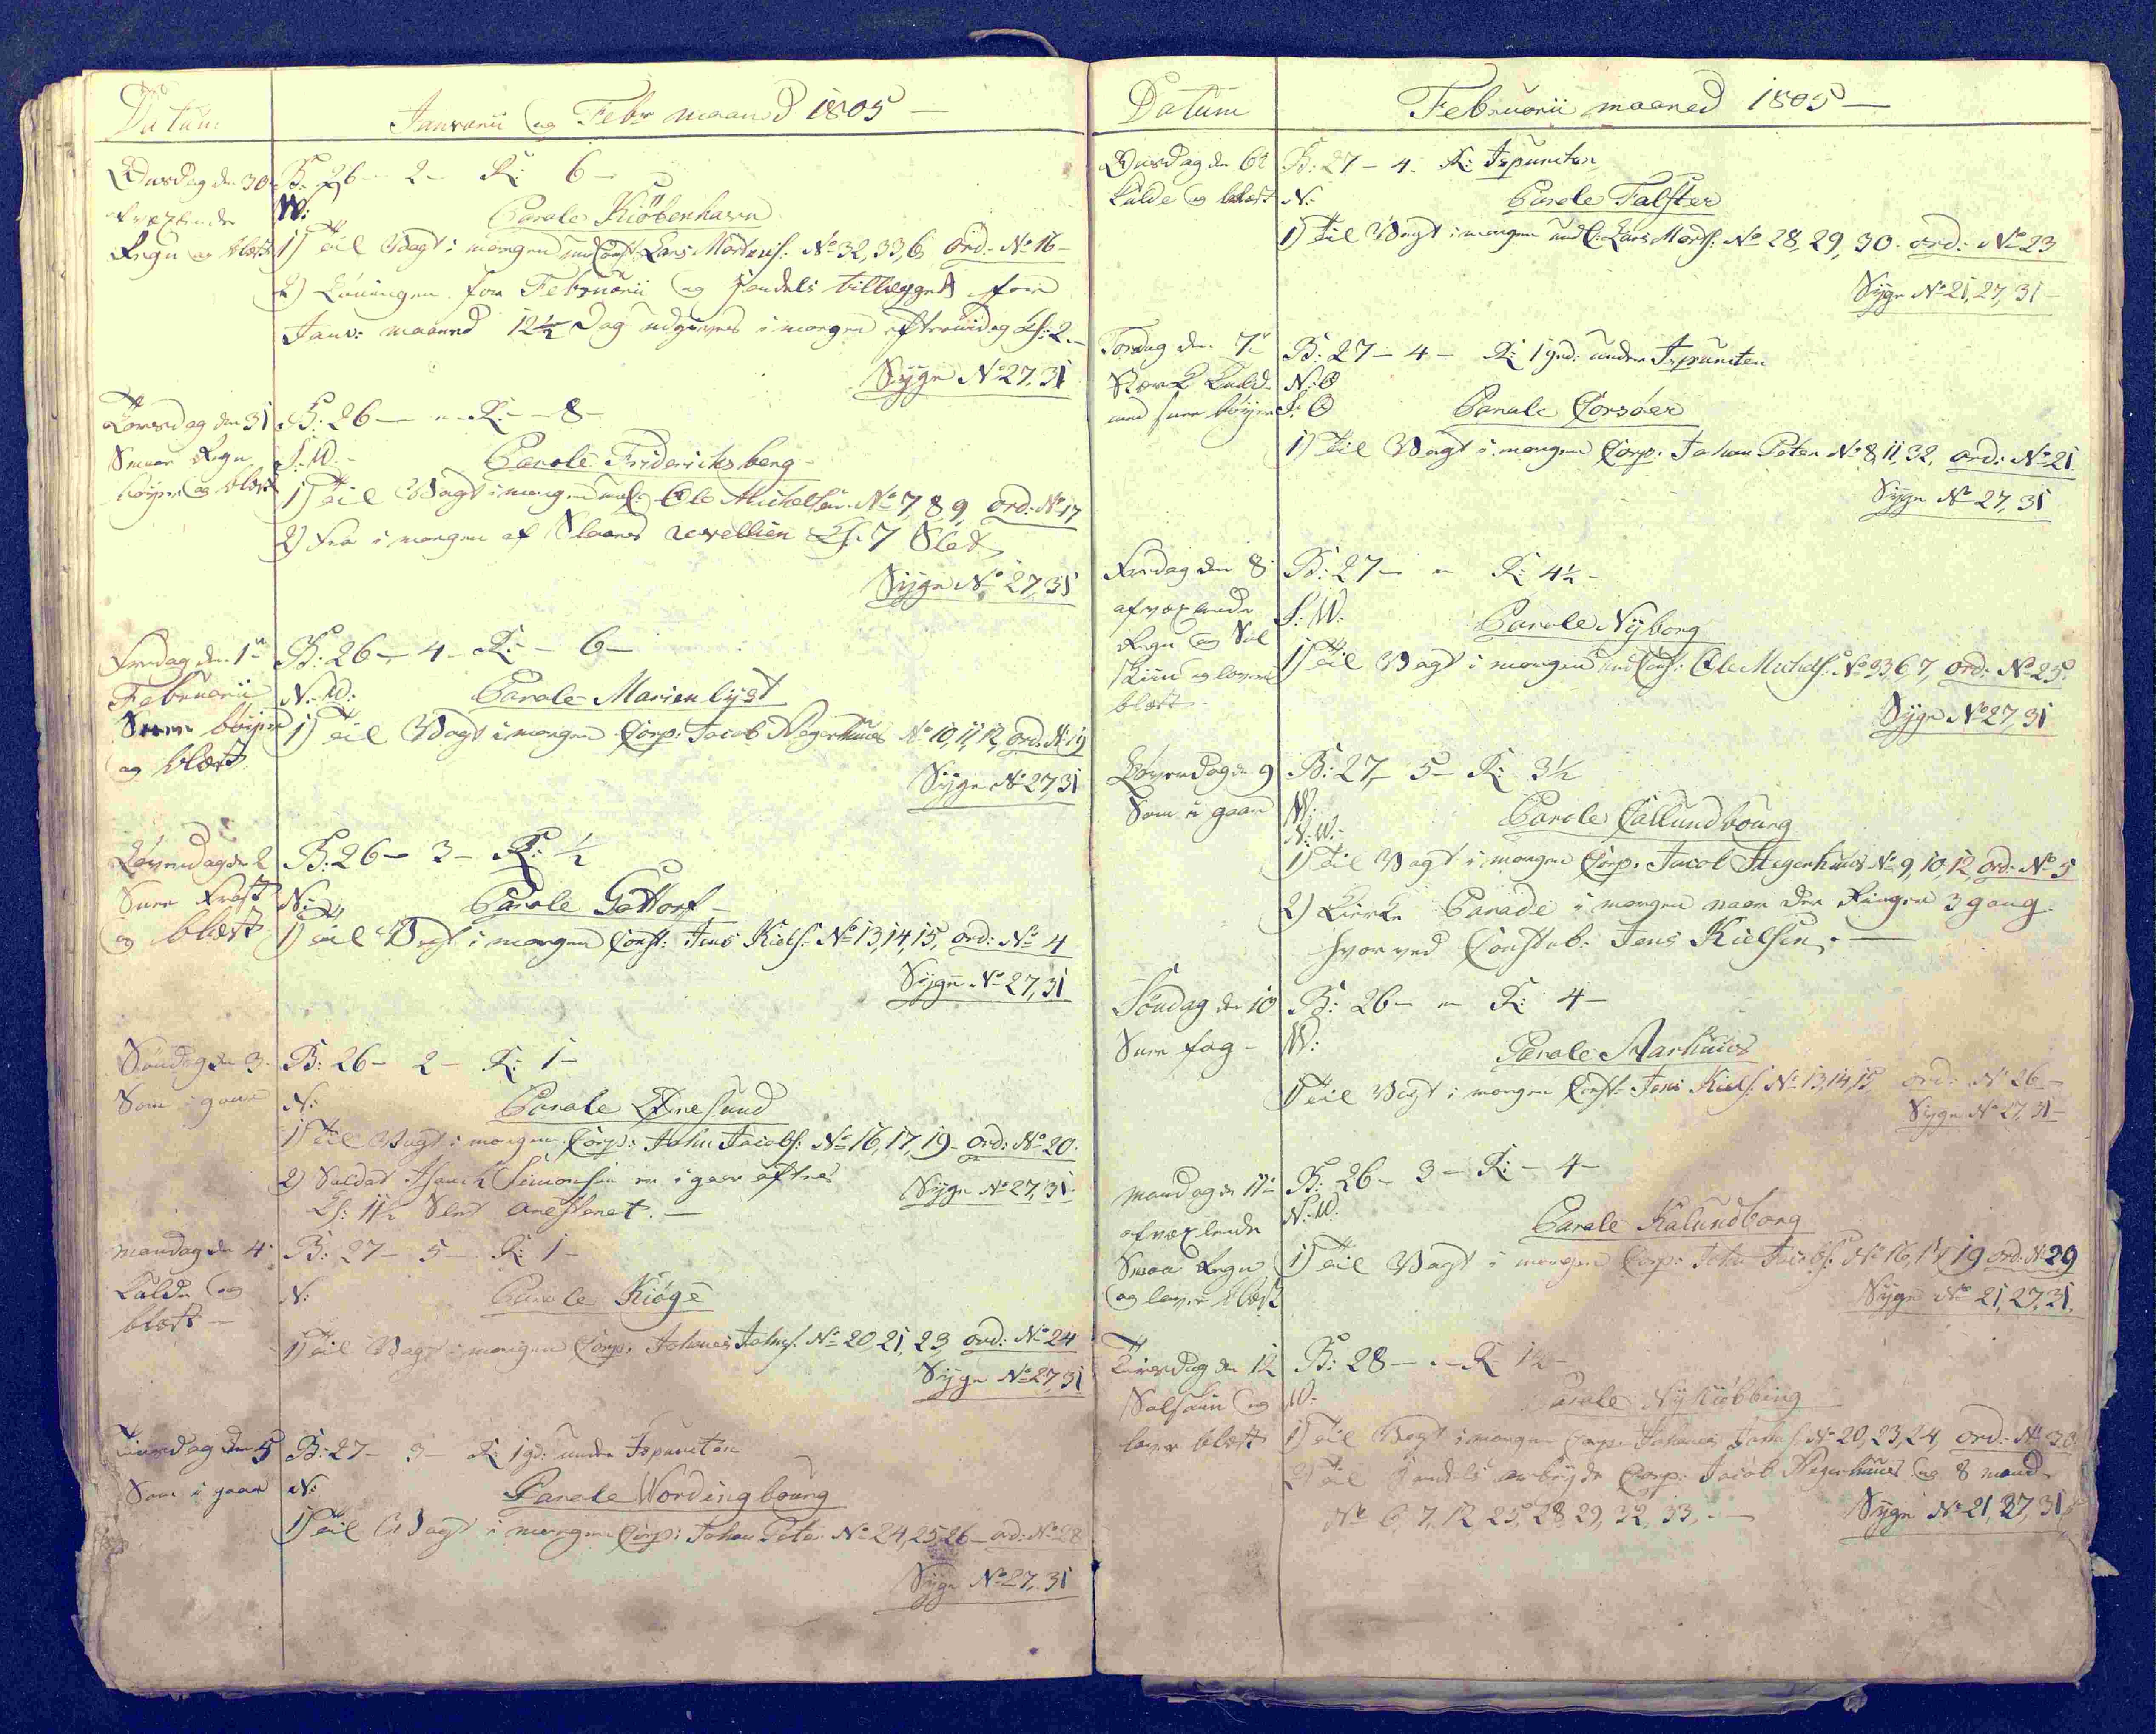 Datum
Januarii og Febr maaned 1805 —
Onsdag den 30
afvexlende
Regn og blæst
B: 26 – 2 – R: 6 –
W:
Parole Kiöbenhavn
1) Til Vagt i morgen und Const: Lars Mortens: No 32, 33, 6, ord: No 16 –
2) Lønningen for Februarii og handels tillægget for
Janv: maaned 12½ Dag udgives i morgen eftermidag Kl: 2 –
Syge No 27, 31
Torsdag den 31
Smaae Regn
böyer og blæst
B: 26 – " – R: – 8 –
S: W. –
Parole Friderichsberg
1) Til Vagt i morgen und C: Ole Michelsen No 7, 8, 9, ord: No 17
2) Fra i morgen af Slaaes revellien Kl. 7 Slet
Syge No 27, 31
Fredag den 1te
Februarii
Snee böyer
og blæst
B: 26 – 4 – R: – 6 –
N: W:
Parole Marienlyst
1) Til Vagt i morgen Corp: Jacob Hegerhuus No 10, 11, 12, ord: No 19
Syge No 27, 31
Løverdag den 2
Snee Frost
og blæst
B: 26 – 3 – R: ½
N:
Parole Gottorf –
1) Til Vagt i morgen Const: Jens Kiels: No 13, 14, 15, ord: No 4
Syge No 27, 31
Søndag den 3
Som i gaar
B: 26 – 2 – R: 1 –
N:
Parole Øresund
1) Til Vagt i morgen Corp: John Jacobs: No 16, 17, 19 – ord: No 20.
2) Soldat Isach Simonsen er i gaar aftes
Kl: 11½ Slet aresteret. —
Syge No 27, 31.
Mandag den 4
Kulde og
blæst —
B: 27 – 5 – R: 1 –
N:
Parole Kiöge
1) Til Vagt i morgen Corp. Johanes Johns: No 20, 21, 23, ord: No 24
Syge No 27, 31
Tiirsdag den 5
Som i gaar
B: 27 – 3 – R: 1 gd: under Ispuncten
N:
Parole Wordingbourg
1) Til Vagt i morgen Corp: Johan Peter No 24, 25, 26 – ord: No 28
Syge No 27, 31
Datum
Februarii maaned 1805 —
Onsdag den 6te
Kulde og blæst
B: 27 – 4 – R: Ispuncten
N:
Parole Falster
1) Til Vagt i morgen und C: Lars Morts: No 28, 29, 30. ord: No 23
Syge No 21, 27, 31 –
Torsdag den 7de
Stærk Kulde
med snee böyer
B: 27 – 4 – R: 1 gd: under Ispuncten
N: O
S: O
Parole Corsøer
1) Til Vagt i morgen Corp: Johan Peter No 8, 11, 32, ord: No 21.
Syge No 27, 31
Fredag den 8
afvexlende
Regn og Sol
skiin og laver
blæst.
B: 27 – " R: 4½ –
S: W:
Parole Nyborg
1) Til Vagt i morgen und Const: Ole Michels: No 33, 6, 7, ord: No 25.
Syge No 27, 31
Løverdag den 9
Som i gaar
B: 27, – 5 – R: 3½
W:
N: W. –
Parole Callundbourg
1) Til Vagt i morgen Corp: Jacob Hegerhuus No 9, 10, 12, ord: No 5
2) Kierke Parade i morgen naar der Ringer 3 gang
hvorved Constab: Jens Kielsen. —
Søndag den 10
Snee fog –
B: 26 – " R: 4 –
W:
Parole Aarhuus
1) Til Vagt i morgen Const: Jens Kiels: No 13, 14, 15, ord: No 26 –
Syge No 27, 31 –
Mandag den 11te
afvexlende
Smaa Regn
og laver blæst
B: 26 – 3 – R: – 4 –
N: W:
Parole Kalundborg
1) Til Vagt i morgen Corp: John Jacobs: No 16, 17, 19 ord: No 29
Syge No 21, 27, 31.
Tiirsdag den 12
Solskin og
laver blæst
B: 28 – " – R: 1½ –
W:
Parole Nykiöbbing
1) Til Vagt i morgen Corp: Johanes Johns: No 20, 23, 24, ord: No 30.
2) Til Handels arbeyde Corp: Jacob Hegerhuus og 8 mand.
No 6, 7, 12, 25, 28, 29, 32, 33, . —
Syge No 21, 27, 31